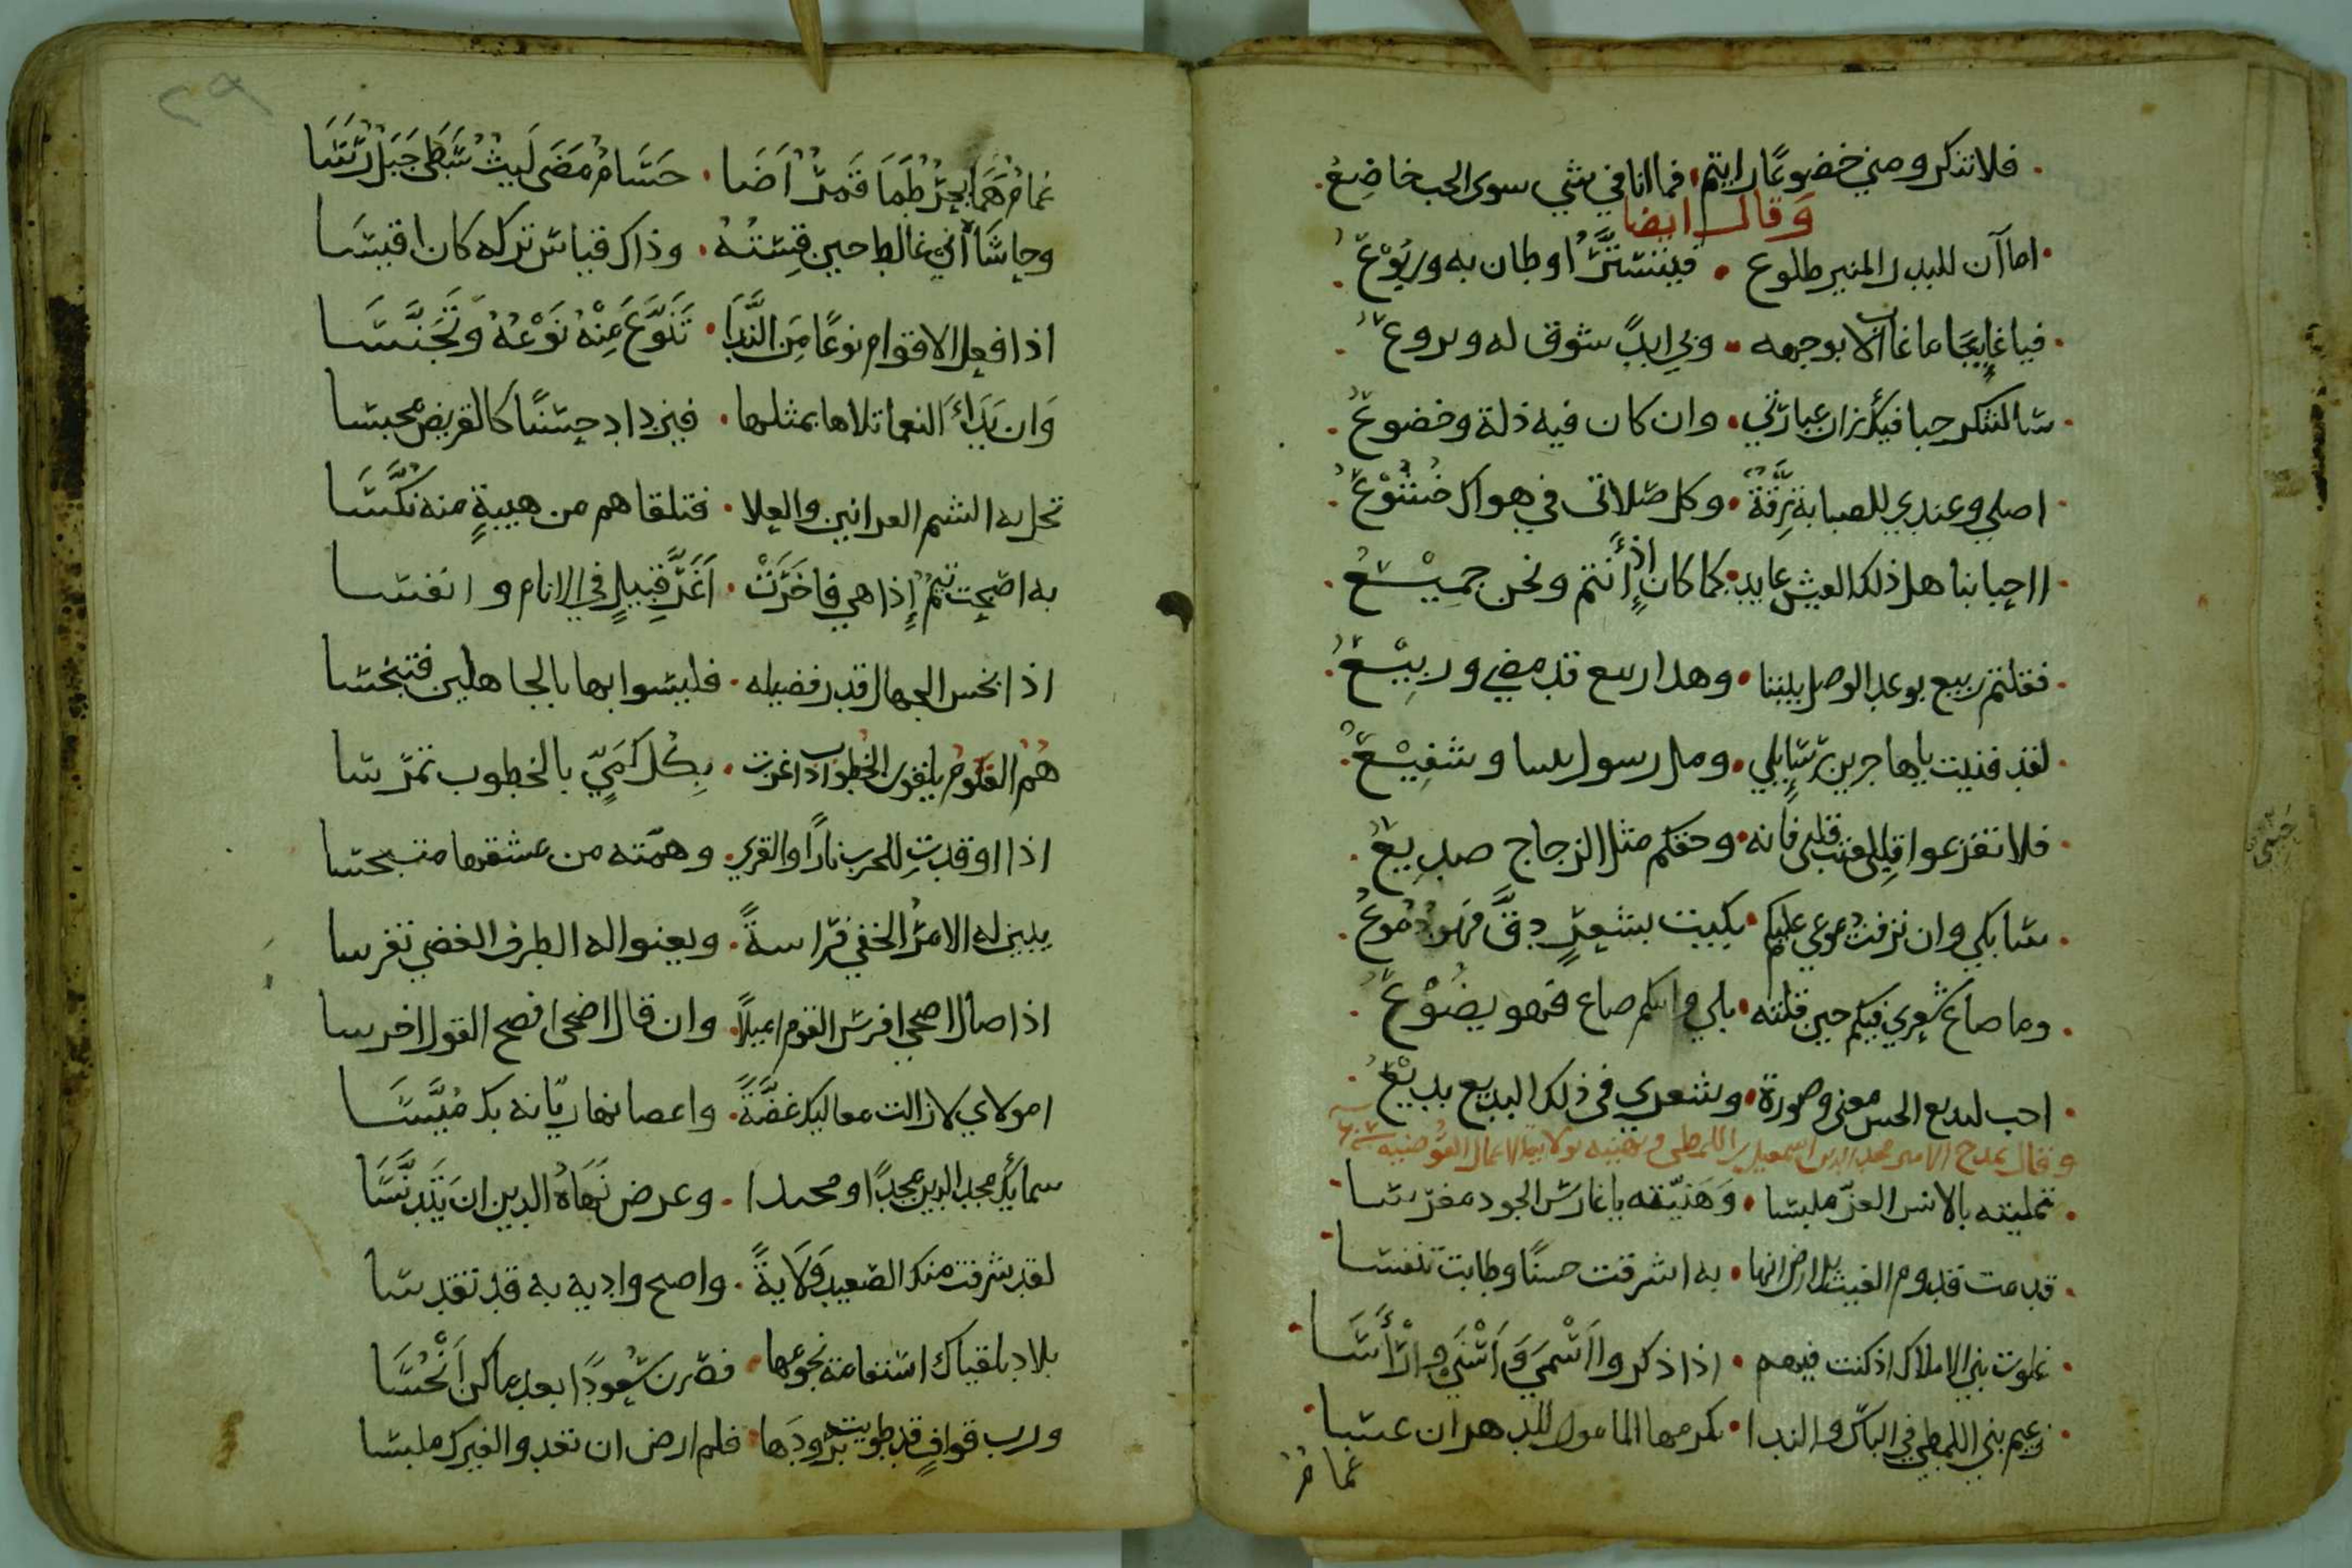 فلا تنكروا مني خضوعًا رايتم • فما انا في شي سوى الحب خاضع
وقال ايضا
اما آن للبدر المنير طلوع • فيشرق اوطان به وربوع
فيا غايبا ما غاب الا بوجهه • ولي ابدًا شوق له وولوع
سالشكر حبا فيك زان عبارتي • وان كان فيه ذلة وخضوع
اصلي وعندي للصبابة رقة • وكل صلاتي في هواك خشوع
ااحبابنا هل ذلك العيش عايد • كما كان إذ أنتم ونحن جميع
فقلتم ربيع بوعد الوصل بيننا • وهذا ربيع قد مضى وربيع
لقد فنيت يا هاجرين رسايلي • ومل رسول بيننا وشفيع
فلا تقرعوا قلبي فانه • وحقكم مثل الزجاج صديع
سابكي وان نزفت دموعي عليكم • بكيت بشعرٍ دق فهو دموع
وما ضاع شعري فيكم حين قلته • بلى وابيكم ضاع فهو يضوع
احب البديع الحسن معنى وصورة • وشعري في ذلك البديع بديع
وقال يمدح الامير مجد الدين اسمعيل اللمطي ويهنيه بولايته الاعمال القوصية سنة
تمليته بالابس العز ملبسا • وهنيته يا غارس الجود مغرسا
قدمت قدوم الغيث للارض انها • به اشرقت حسنًا وطابت تنفسا
علوت بني الاملاك اذ كنت فيهم • اذا ذكروا اسمى واسنى وارأسا
زعيم بني اللمطي في الباس والندا • مكرمها المامول للدهر ان عسا
غمام
غمام هما بحر طما قمر اضا • حسام مضى ليث سطى جبل رسا
وحاشا اني غالط حين قسته • وذاك قياس تركه كان اقيسا
اذا فعل الاقوام نوعًا من الندا • تنوع منه نوعه وتجنسا
وان بدأ النعما تلاها بمثلها • فيزداد حسنًا كالقريض مجنسا
تحل به الشم العرانين والعلا • فتلقاهم من هيبةٍ منه نكسا
به اصبحت تيم إذا هي فاخرت • اغر قبيلٍ في الانام وانفسا
اذا بخس الجهال قدر فضيله • فليسوا بها بالجاهلين فتبخسا
هم القوم يلقون الخطوب اذا عرت • بكل كمي بالخطوب تمرسا
اذا اوقدت للحرب نارًا والقرى • وهمته من عشقها متبجسا
يبين له الامر الخفي فراسةً • ويعنوا له الطرف الغضي تفرسا
اذا صال اضحى افرس القوم اميلاً • وان قال اضحى افصح القول اخرسا
امولاي لا زالت معاليك غضةً • واغصانها ريانه بك ميسا
سما بك مجد الدين مجدًا ومحتدا • وعرض نهاه الدين ان يتدنسا
لقد شرفت منك الصعيد ولايةً • واصبح واديه به قد تقدسا
بلاد بلقياك استقامت نجومها • فصرن سعودًا بعد ما كن انحسا
ورب قوافٍ قد طويت برودها • فلم ارض ان تغدو الغيرك ملبسا